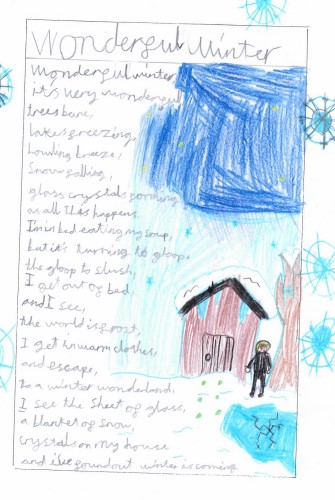 Wonderful Winter
Wonderful winter,
it's very wonderful
trees bare,
lakes freezing,
howling breeze,
Snow falling,
glass crystals forming
as all this happens.
I'm in bed eating my soup,
but it's turning to gloop,
the gloop to slush,
I get out of bed,
and I see,
the world is frost,
I get in warm clothes,
and escape,
to a winter wonderland,
I see the sheet of glass,
a blanket of snow,
crystals on my house
and i found out winter is coming